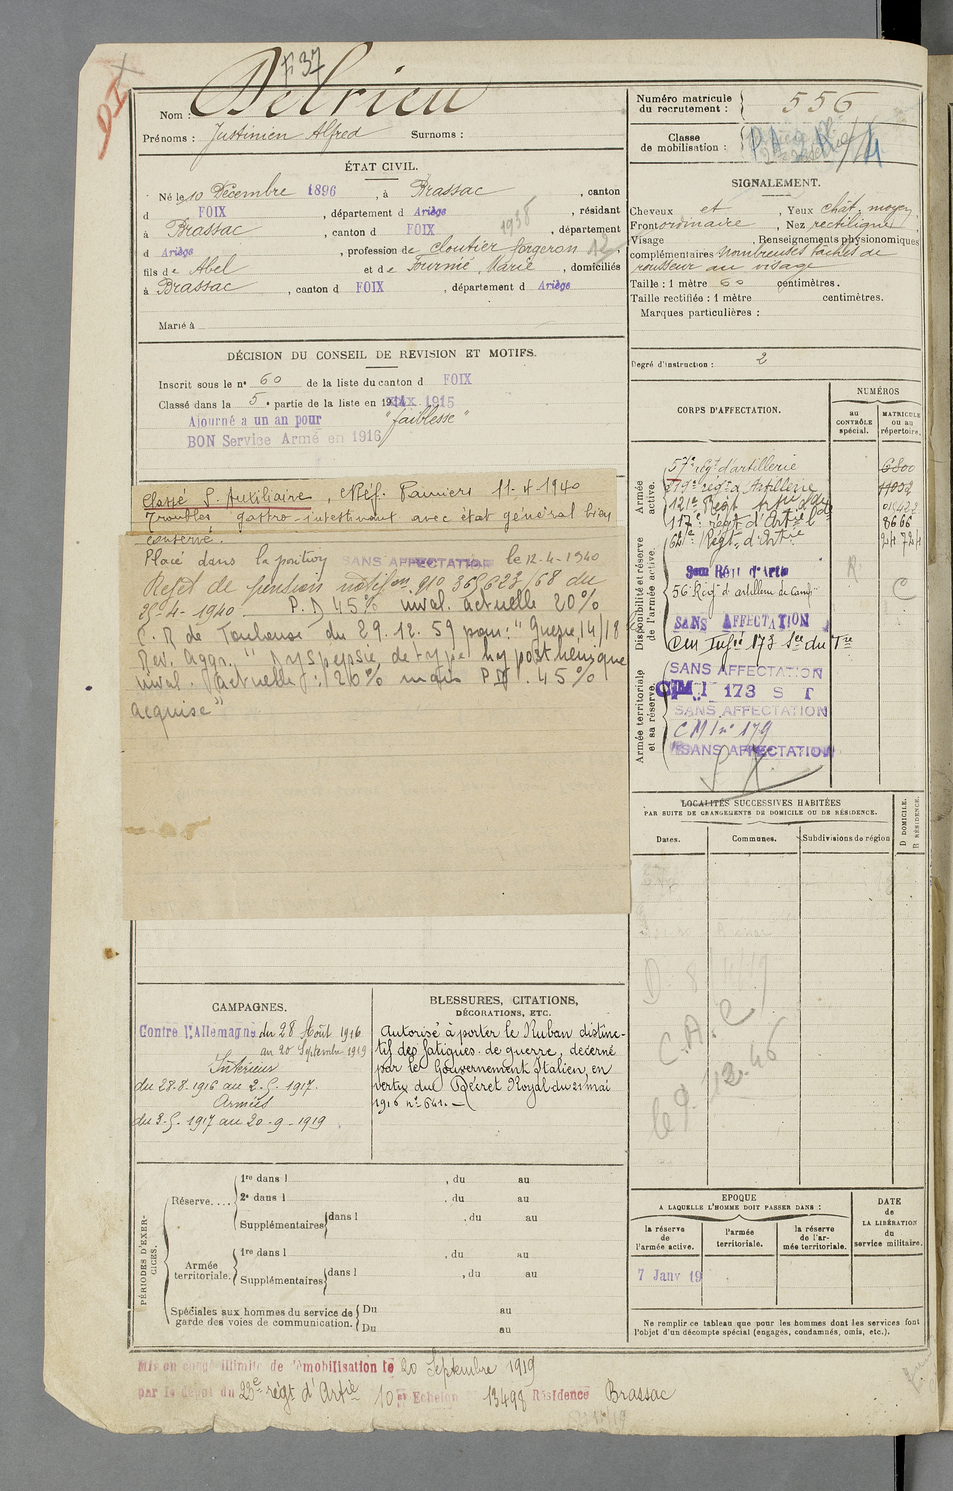 F 37
Nom : Delrieu
Prénoms : Justinien Alfred Surnoms :
ÉTAT CIVIL.
Né le 10 Décembre 1896, à Brassac, canton
d FOIX, département d Ariège, résidant
à Brassac, canton d FOIX, département
d Ariège, profession de cloutier forgeron
1938
12
fils de Abel et de Fournié, Marie, domiciliés
à Brassac, canton d FOIX, département d Ariège
Marié à
DÉCISION DU CONSEIL DE REVISION ET MOTIFS.
Inscrit sous le n° 60 de la liste du canton d FOIX
Classé dans la 5e partie de la liste en 1915
Ajourné a un an pour "faiblesse"
BON Service Armé en 1916
Classé S. Auxiliaire, Préf. Pamiers 11-4-1940
Troubles gastro-intestinaux avec état général bien
conservé.
Placé dans la position SANS AFFECTATION le 12-4-1940
Rejet de pension notifion n°0 365623/68 du
25-4-1940 P.D 45% inval. actuelle 20%
C.R de Toulouse du 29.12.59 pour: "Guerre 14/18
Rev. Aggr., "Dyspepsie, de type hyposthénique
inval. actuelle: 20% mais P.D. 45%
acquise"
CAMPAGNES.
Contre l'Allemagne du 28 Août 1916
au 20 Septembre 1919
Intérieur
du 28.8.1916 au 2.5.1917.
Armées
du 3.5.1917 au 20-9-1919
BLESSURES, CITATIONS,
DÉCORATIONS, ETC.
Autorisé à porter le Ruban distinc-
tif des fatigues de guerre, décerné
par le Gouvernement Italien, en
vertu du Décret Royal du 21 mai
1916 n° 641.
PÉRIODES D'EXER-
CICES.
Réserve....
1re dans l , du au
2e dans l , du au
Supplémentaires dans l , du au
Armée
territoriale.
1re dans l , du au
Supplémentaires dans l , du au
Spéciales aux hommes du service de
garde des voies de communication.
Du au
Du au
Mis en congé illimité de démobilisation le 20 Septembre 1919
par le dépôt du 23e régt d'Artie 10e Echelon 13498 Résidence Brassac
Numéro matricule
du recrutement : 556
Classe
de mobilisation :
SIGNALEMENT.
Cheveux et, Yeux chât. moyen
Front ordinaire, Nez rectiligne
Visage , Renseignements physionomiques
complémentaires nombreuses tâches de
rousseur au visage
Taille : 1 mètre 60 centimètres.
Taille rectifiée : 1 mètre centimètres.
Marques particulières :
Degré d'instruction : 2
CORPS D'AFFECTATION.
NUMÉROS
au
CONTRÔLE
spécial.
MATRICULE
ou au
répertoire.
Armée
active.
Disponibilité et réserve
de l'armée active.
Armée territoriale
et sa réserve.
57e régt d'artillerie 6800
219e régt d'Artillerie
121e Régt
117e régt d'Artie Lde 8666
62e Régt d'Artie 24724
3em Régt d'Artie
R.
C
56e Régt d'artillerie de Camp
SANS AFFECTATION
Cen Infrie 173 Sec du Tre
SANS AFFECTATION
CMI 173 S T
SANS AFFECTATION
CMI n° 179
SANS AFFECTATION
LOCALITÉS SUCCESSIVES HABITÉES
PAR SUITE DE CHANGEMENTS DE DOMICILE OU DE RÉSIDENCE.
Dates. Communes. Subdivisions de région
D DOMICILE.
R RÉSIDENCE.
C.A.C
le 9.12.46
EPOQUE
A LAQUELLE L'HOMME DOIT PASSER DANS :
la réserve
de
l'armée active.
l'armée
territoriale.
la réserve
de l'ar-
mée territoriale.
DATE
de
LA LIBÉRATION
du
service militaire.
7 Janv 19
Ne remplir ce tableau que pour les hommes dont les services font
l'objet d'un décompte spécial (engagés, condamnés, omis, etc.).